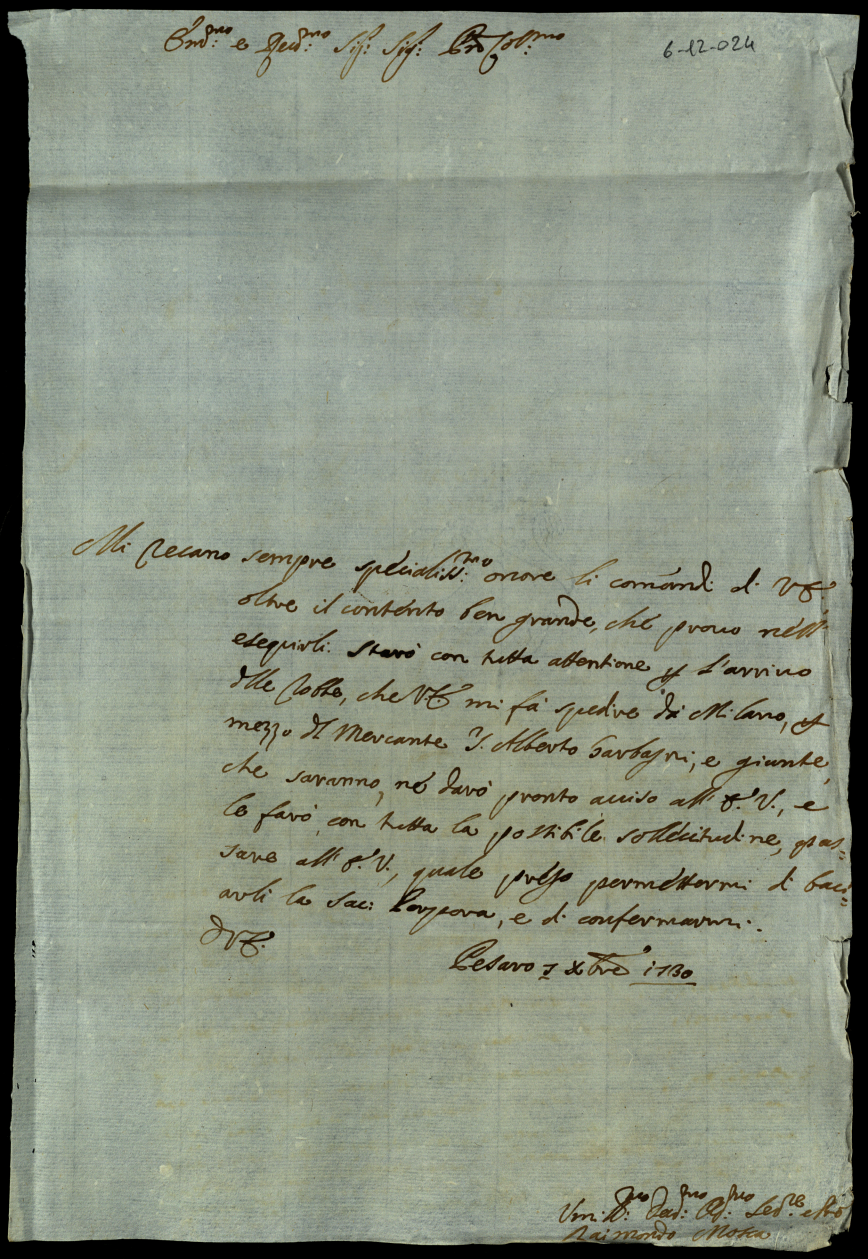 Em.mo e Reud.mo Sig.r Sig.r Pron Col.mo
6-12-024
Mi recano sempre specialiss.mo onore li comandi di VE.
oltre il contento ben grande, che prouo nell'
esequirli. Starò con tutta attentione p l'arriuo
dlle robbe, che VE mi fà spedire da Milano, p
mezzo dl Mercante S. Alberto Garbagni, e giunte,
che saranno, ne darò pronto auiso all' E.V., e
le farò con tutta la possibile sollecitudine, pas=
sare all' E.V., quale prego permettermi di baci=
arli la Sac: Porpora, e di confermarmi.
D VE.
Pesaro 7 Xbre 1730
Um. Deu. Ob. Ser.re
Raimondo Mosca